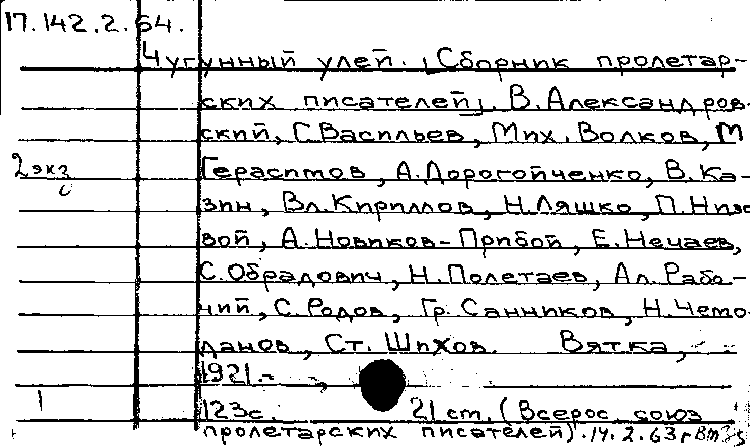 17.142.2.64.
Чугунный улей. [Сборник пролетар-
ских писателей]. В.Александров-
ский, С.Васильев, Мих. Волков, М
2 экз Герасимов, А.Дорогойченко, В.Ка-
зин, Вл.Кириллов, Н.Ляшко, П.Низо
вой, А.Новиков-Прибой, Е.Нечаев,
С.Обрадович, Н.Полетаев, Ал.Рабо-
чий, С.Родов, Гр.Санников, Н.Чемо
данов, Ст.Шихов. Вятка,
1921.-
1 123с. 21 cm. (Всерос. союз
пролетарских писателей). 14.2.63г